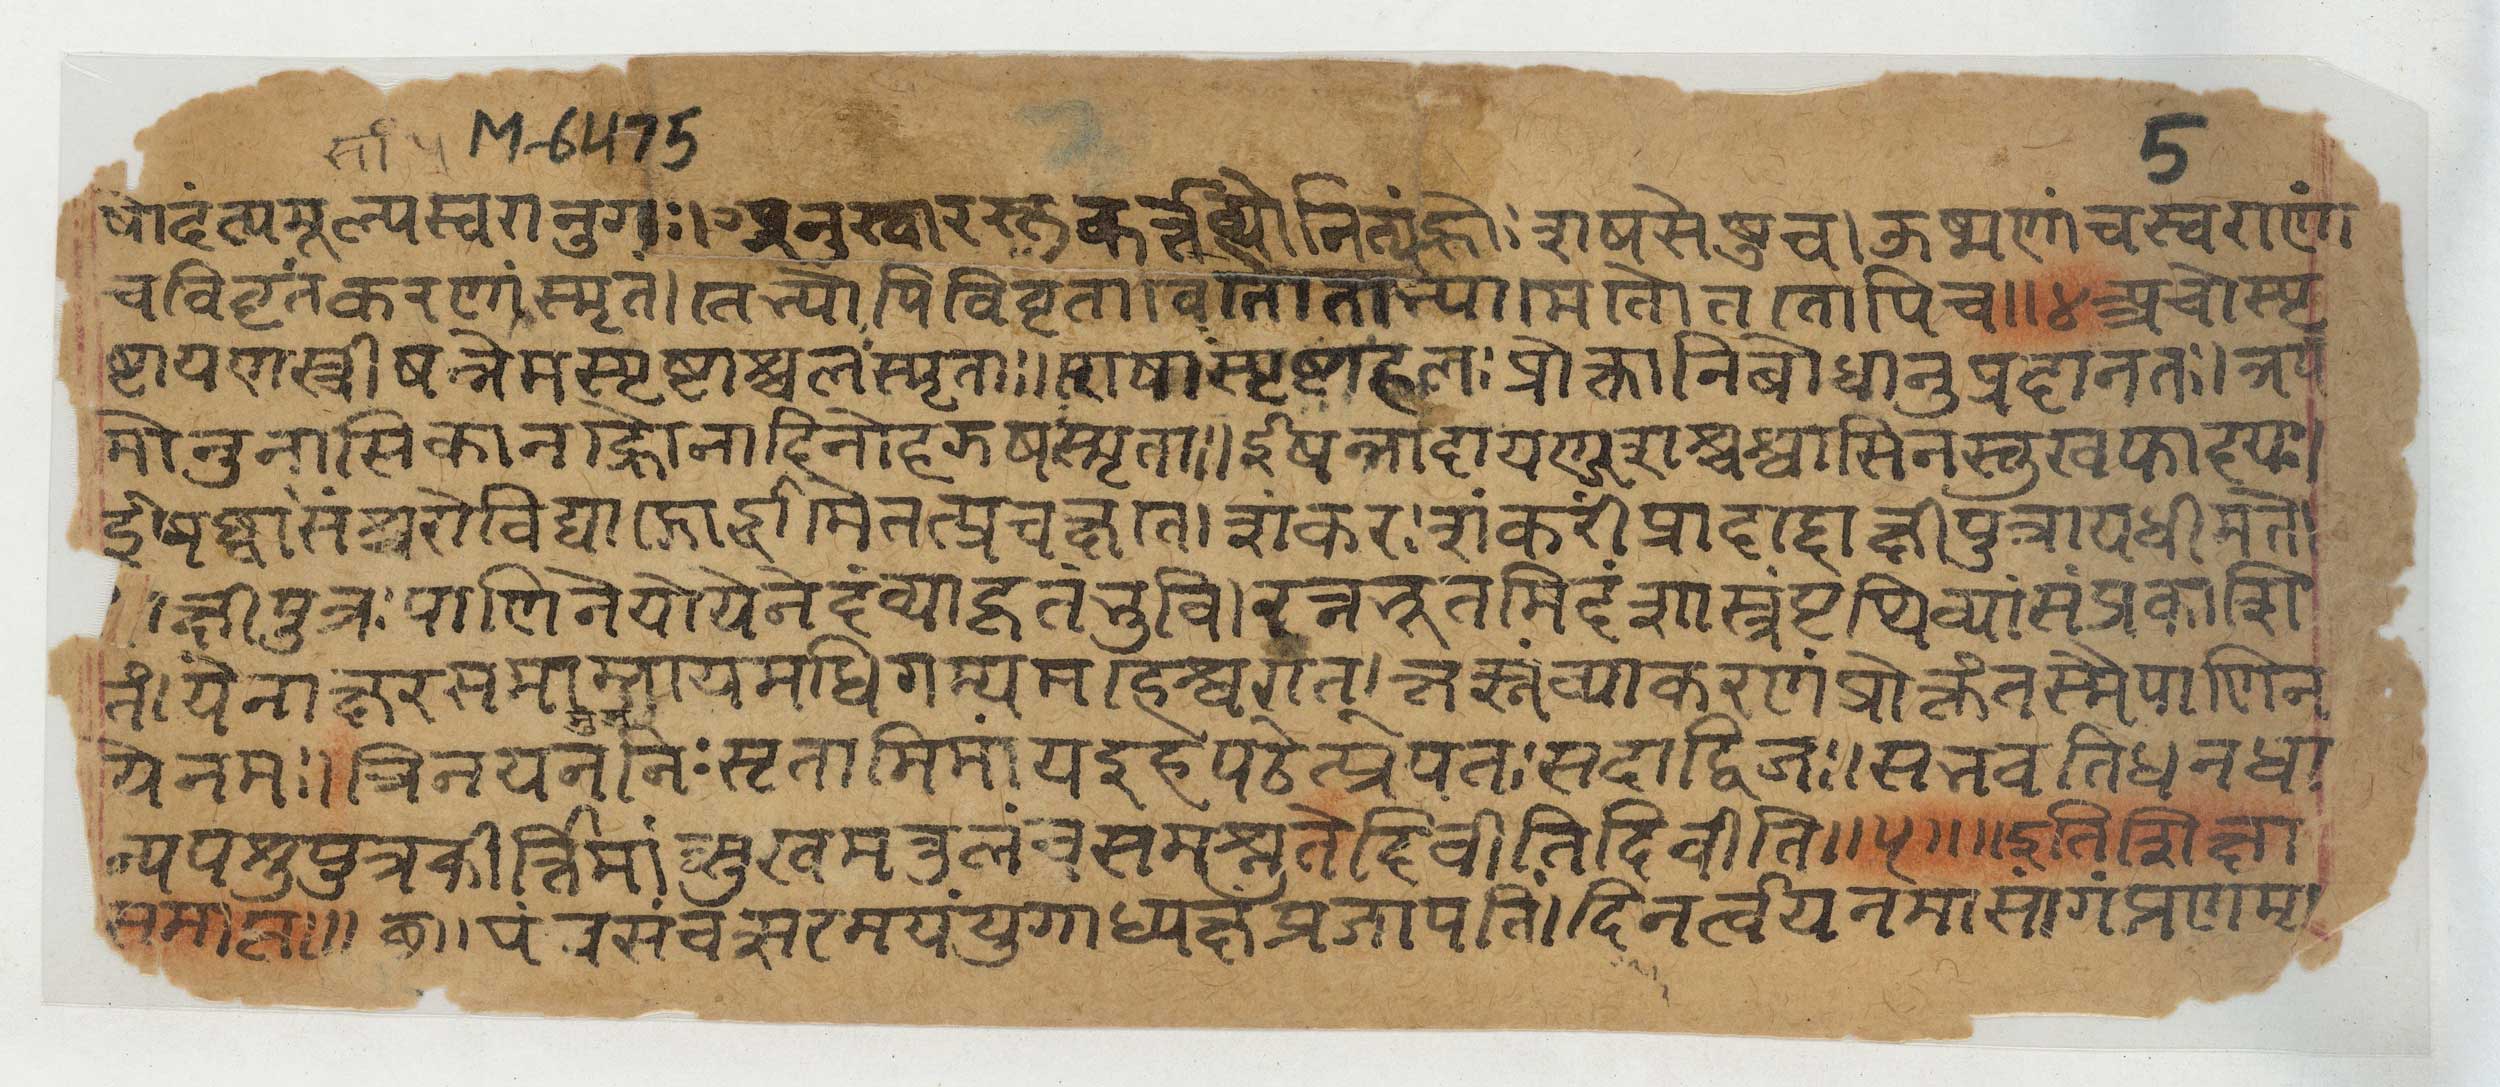 M-6475
5
षोदंत्यमूल्यस्वरानुगः।। अनुस्वारस्तु कर्त्तव्यो नित्यं ह्रोः शषसेषु च। ऊष्मणां च स्वराणां
च विवृतं करणं स्मृतं। तेभ्योपि विवृता
अचोस्पृ
ष्टायणस्त्वीषन्नेमस्पृष्टाश्चलस्मृताः।। शेषाः स्पृष्टाहलः प्रोक्तानिबोधानुप्रदानतः। ञम
मोनुनासिकानह्रोनादिनोहझषस्मृताः।। ईषन्नादायणजशश्चश्वासिनस्तुखफादयः।
ईषच्छ्वासंश्चरोविद्याद्गोर्द्धामैतत्प्रचक्षते। शंकरः शांकरीं प्रादाद्दाक्षीपुत्रायधीमते।
क्षीपुत्रः पाणिनेयो येनेदं व्याहृतं भुवि। रत्नभूतमिदं शास्त्रं पृथिव्यां संप्रकाशि
तं। येनाक्षरसमाम्नायमधिगम्यमहेश्वरात्। कृत्स्नं व्याकरणं प्रोक्तं तस्मै पाणिन
ये नमः।। त्रिनयनमुखनिःसृतामिमां य इह पठेत्प्रयतः सदा द्विजः।। स भवति धनधा
न्यपशुपुत्रकीर्त्तिमां सुखमतुलं च समश्नुते दिवीति दिवीति।।५।। ।।इति शिक्षा
समाप्तः।। छ।। पंचसंवत्सरमयं युगाध्यक्षं प्रजापतिं। दिनर्त्वयनमासांगं प्रणम्य